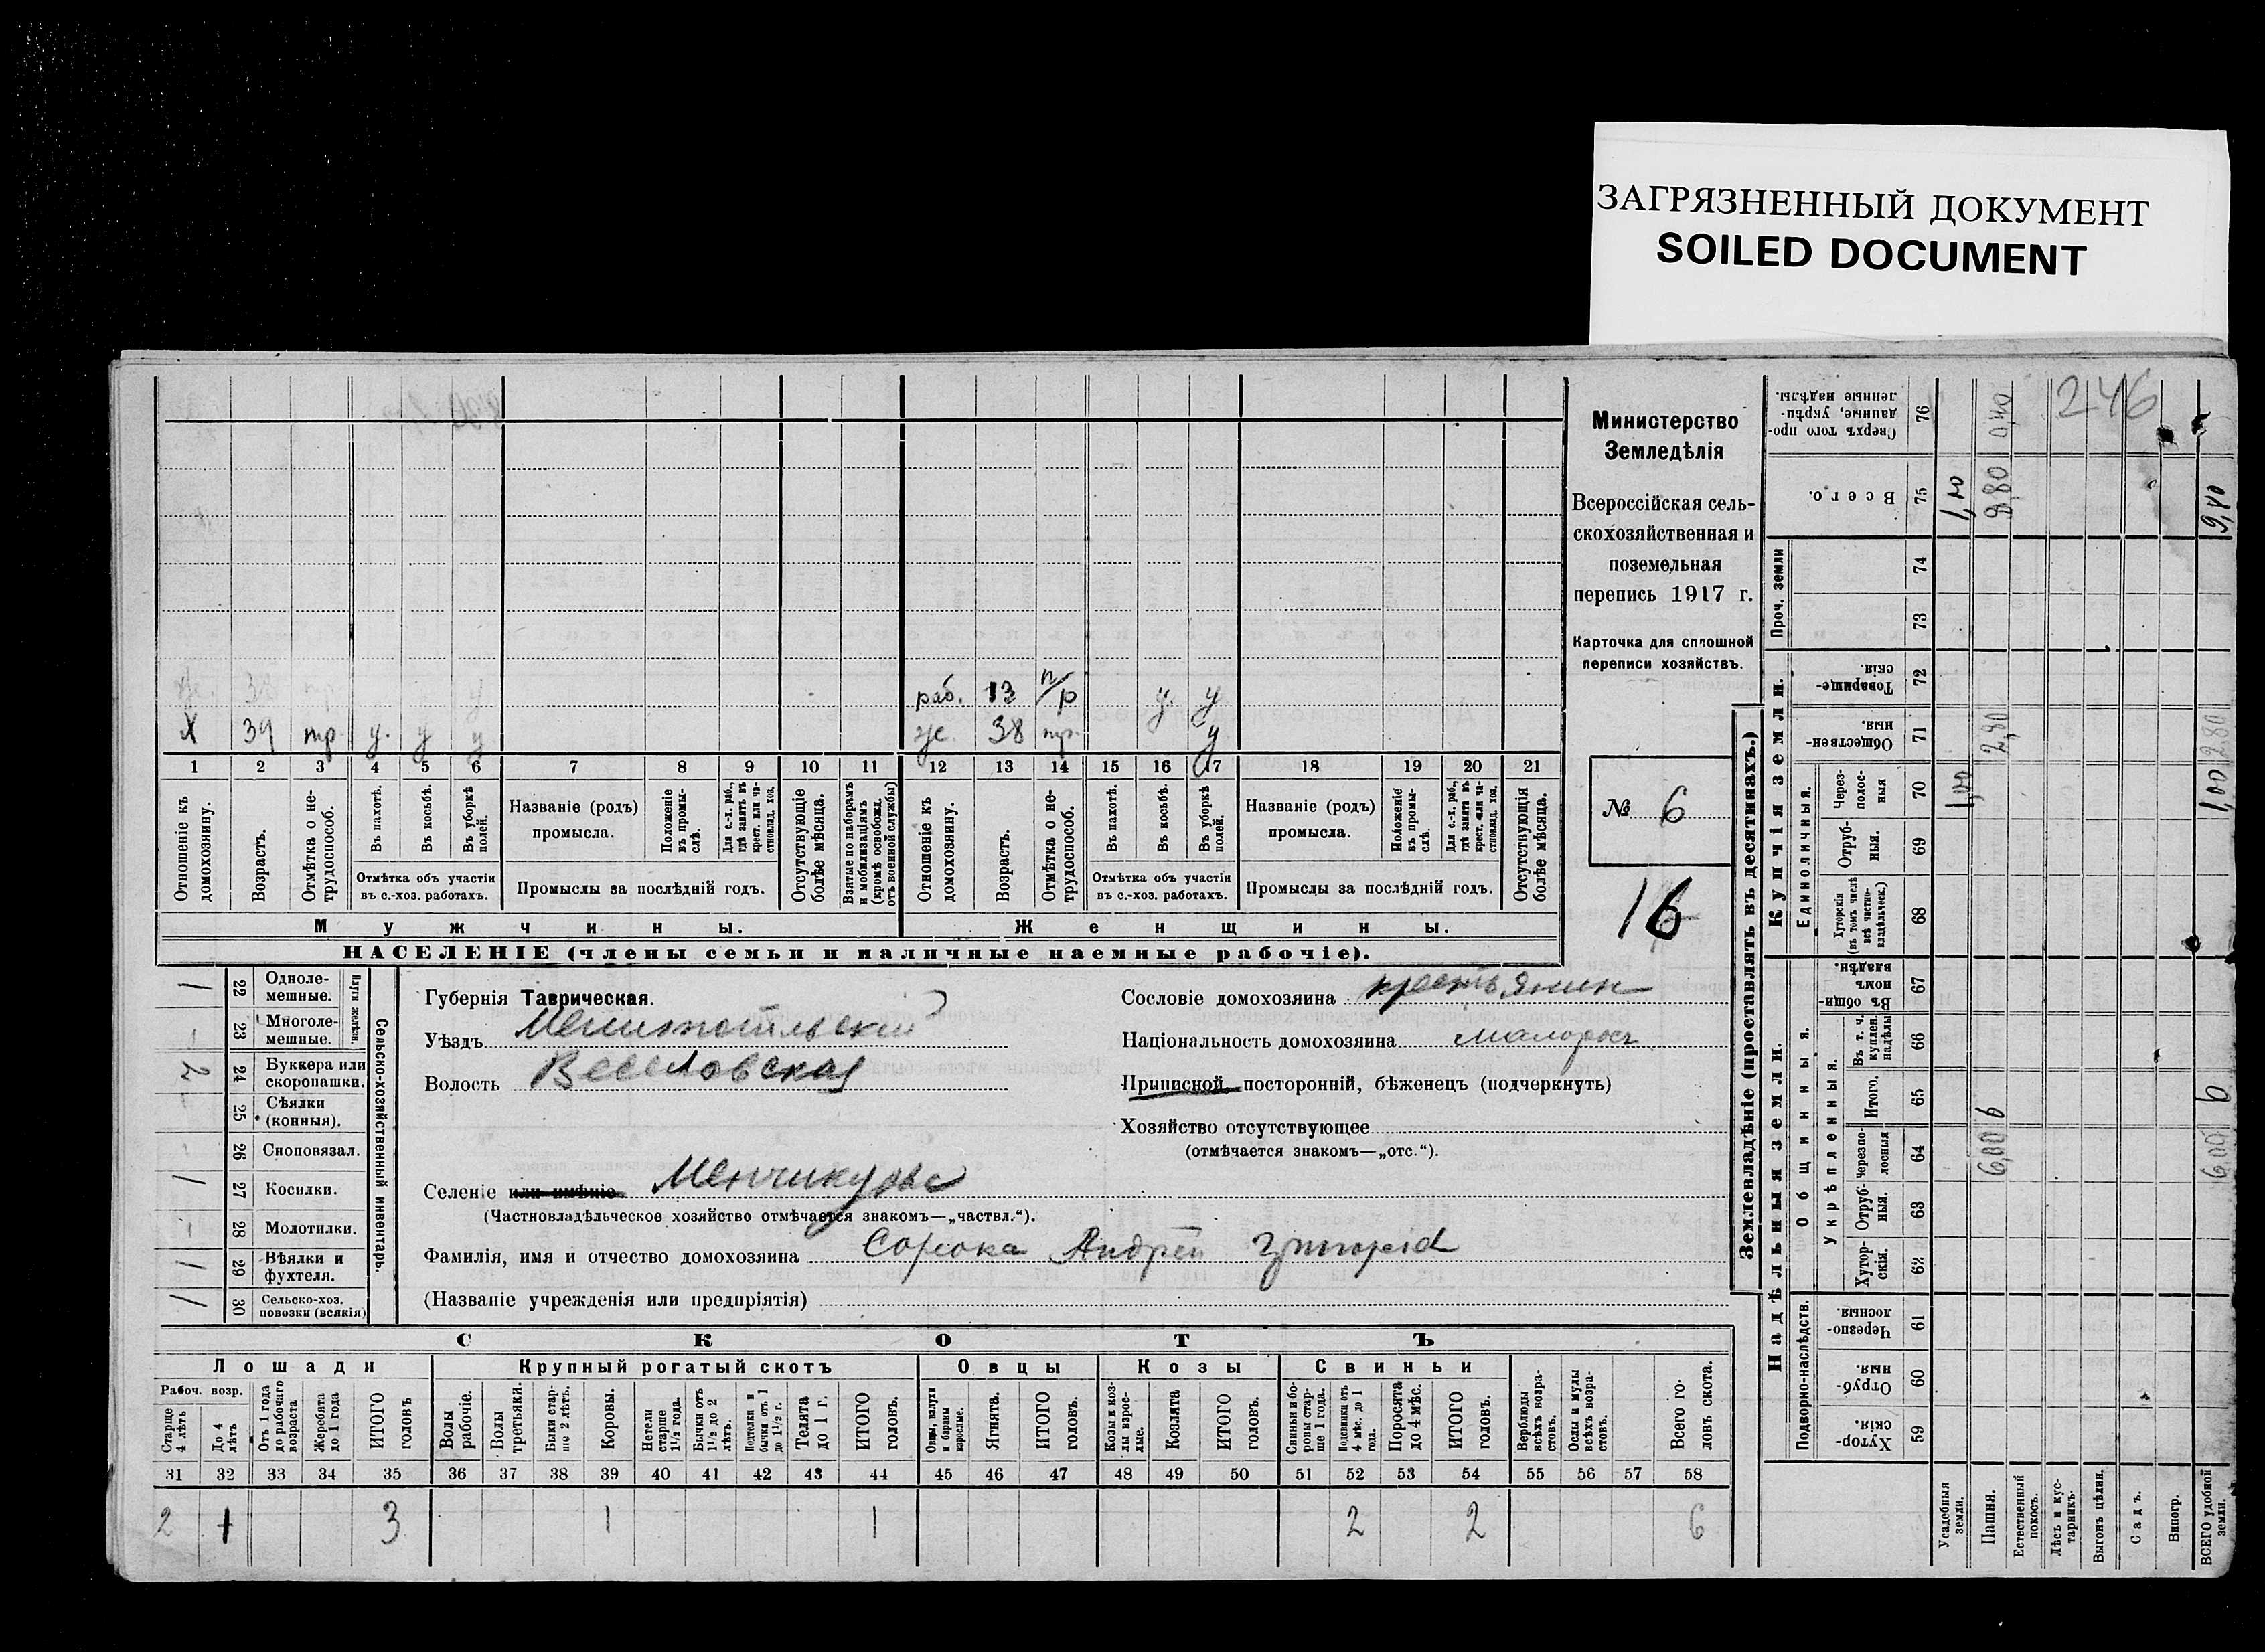 ЗАГРЯЗНЕННЫЙ ДОКУМЕНТ
SOILED DOCUMENT
246
Министерство
Земледѣлія
Всероссійская сель-
скохозяйственная и
поземельная
перепись 1917 г.
Карточка для сплошной
переписи хозяйствъ.
№ 6
16
раб. 13 н/р у. у
Х 39 тр. у. у у
же. 38 тр. у
1 2 3 4 5 6 7 8 9 10 11 12 13 14 15 16 17 18 19 20 21
Отношеніе къ домохозяину.
Возрастъ.
Отмѣтка о не-трудоспособ.
Въ пахотѣ.
Въ косьбѣ.
Въ уборкѣ полей.
Отмѣтка объ участіи
въ с.-хоз. работахъ.
Названіе (родъ)
промысла.
Положеніе въ промы-слѣ.
Для с.-х. раб., гдѣ занятъ въ крест. или ча-стновлад. хоз.
Промыслы за послѣдній годъ.
Отсутствующіе болѣе мѣсяца.
Взятые по наборамъ и мобилизаціямъ (кромѣ освобожд. отъ военной службы)
Отношеніе къ домохозяину.
Возрастъ.
Отмѣтка о не-трудоспособ.
Въ пахотѣ.
Въ косьбѣ.
Въ уборкѣ полей.
Отмѣтка объ участіи
въ с.-хоз. работахъ.
Названіе (родъ)
промысла.
Положеніе въ промы-слѣ.
Для с.-х. раб., гдѣ занята въ крест. или ча-стновлад. хоз.
Промыслы за послѣдній годъ.
Отсутствующія болѣе мѣсяца.
Мужчины.
Женщины.
НАСЕЛЕНІЕ (члены семьи и наличные наемные рабочіе).
Сельско-хозяйственный инвентарь.
Плуги желѣзн.
1 22 Одноле-мешные.
- 23 Многоле-мешные.
2 24 Буккера или скоропашки.
- 25 Сѣялки (конныя).
26 Сноповязал.
1 27 Косилки.
28 Молотилки.
1 29 Вѣялки и фухтеля.
1 30 Сельско-хоз. повозки (всякія)
Губернія Таврическая.
Уѣздъ Мелитопольскій
Волость Веселовская
Селеніе или имѣніе Менчикурова
(Частновладѣльческое хозяйство отмѣчается знакомъ—„частвл.“).
Фамилія, имя и отчество домохозяина Сорока Андрей Григорiев
(Названіе учрежденія или предпріятія)
Сословіе домохозяина крестьянин
Національность домохозяина малоросъ
Приписной посторонній, бѣженецъ (подчеркнуть)
Хозяйство отсутствующее
(отмѣчается знакомъ—„отс.“).
СКОТЪ
Лошади
Крупный рогатый скотъ
Овцы
Козы
Свиньи
Рабоч. возр.
Старше 4 лѣтъ
До 4 лѣтъ
Отъ 1 года до рабочаго возраста
Жеребята до 1 года
ИТОГО головъ
Волы рабочіе.
Волы третьяки.
Быки стар-ше 2 лѣтъ.
Коровы.
Нетели старше 1½ года.
Бычки отъ 1½ до 2 лѣтъ.
Подтелки и бычки отъ 1 до 1½ г.
Телята до 1 г.
ИТОГО головъ.
Овцы, валухи и бараны взрослые.
Ягнята.
ИТОГО головъ.
Козы и коз-лы взрос-лые.
Козлята
ИТОГО головъ.
Свиньи и бо-ровы стар-ше 1 года.
Подсвинки отъ 4 мѣс. до 1 года.
Поросята до 4 мѣс.
ИТОГО головъ.
Верблюды всѣхъ возра-стовъ.
Ослы и мулы всѣхъ возра-стовъ.
Всего го-ловъ скота.
31 32 33 34 35 36 37 38 39 40 41 42 43 44 45 46 47 48 49 50 51 52 53 54 55 56 57 58
2 1 3 1 1 2 2 6
Землевладѣніе (проставлять въ десятинахъ.)
Купчія земли.
Надѣльныя земли.
Проч. земли
Единоличныя.
Общинныя.
Укрѣпленныя.
Подворно-наслѣдств.
Сверхъ того про-данные, укрѣп-ленные надѣлы. 76 0,40
Всего. 75 8,80 9,80
74
73
Товарище-скія. 72
Обществен-ныя 71 2,80 2,80
Через-полос-ныя 70 1,00 1,00
Отруб-ныя. 69
Хуторскія (въ томъ числѣ всѣ частно-владѣльческ.) 68
Въ общин-номъ владѣн. 67
Въ т. ч. куплен. надѣлы 66
Итого. 65 6 6
Черезпо-лосныя 64 6,00 6,00
Отруб-ныя. 63
Хутор-скія. 62
Черезпо-лосныя 61
Отруб-ныя. 60
Хутор-скія. 59
Усадебныя земли.
Пашня.
Естественный покосъ.
Лѣсъ и кус-тарникъ.
Выгонъ цѣлин.
Садъ.
Виногр.
ВСЕГО удобной земли.